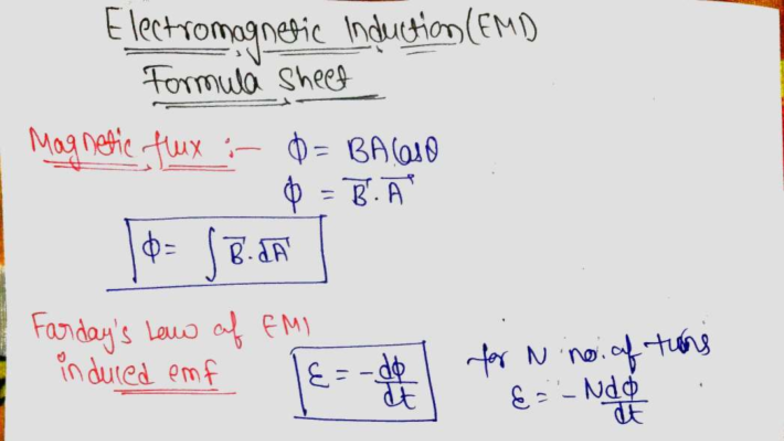 Electromagnetic Induction (EMI)
Formula Sheet
Magnetic flux :- ϕ = BA Cosθ
ϕ = B⃗ . A⃗
ϕ = ∫ B⃗ . dA⃗
Farday's Law of EMI
induced emf ε = -dϕ/dt
for N no. of turns
ε = - Ndϕ/dt